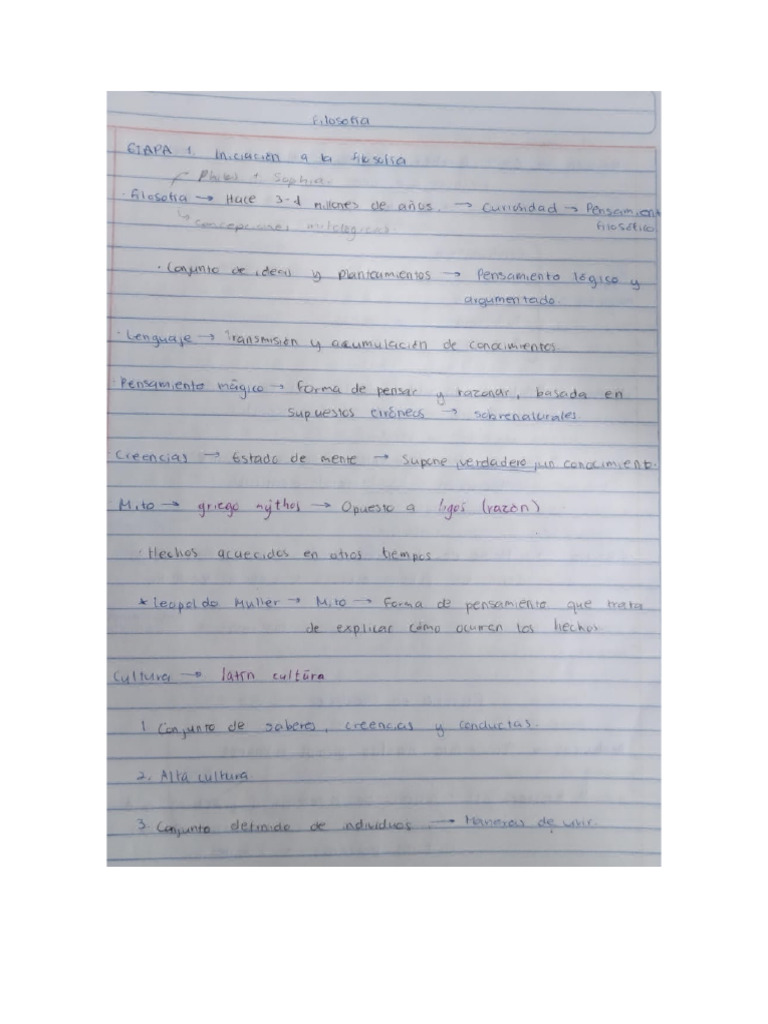 Filosofía
ETAPA 1. Iniciación a la filosofía
Philos + Sophia.
· Filosofía → Hace 3-4 millones de años. → Curiosidad → Pensamient
filosófico
Concepciones mitológicas
· Conjunto de ideas y planteamientos → Pensamiento lógico y
argumentado.
· Lenguaje → Transmisión y acumulación de conocimientos.
· Pensamiento mágico → forma de pensar y razonar, basada en
supuestos erróneos → sobrenaturales
· Creencias → Estado de mente → Supone verdadero un conocimient.
· Mito → griego mythos → Opuesto a logos (razón)
· Hechos acaecidos en otros tiempos
* Leopoldo Muller → Mito → Forma de pensamiento que trata
de explicar cómo ocurren los hechos
Cultura → latín cultūra
1. Conjunto de saberes, creencias y conductas.
2. Alta cultura
3. Conjunto definido de individuos → Maneras de vivir.